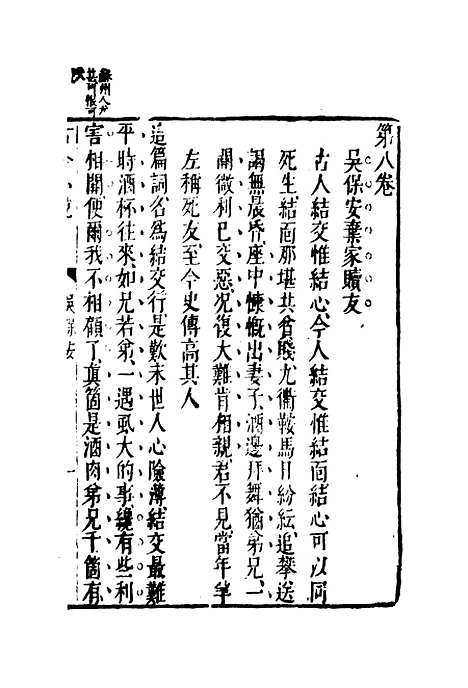 第八卷
吳保安棄家贖友
古人結交惟結心今人結交惟結面結心可以同
死生結面那堪共貧賤九衢鞍馬日紛紜追攀送
謁無晨昏座中慷慨出妻子酒邊拜舞猶弟兄一
關微利已交惡况復大難肯相親君不見當年羊
左稱死友至今史傳高其人
這篇詞名為結交行是歎末世人心險薄結交最難
平時酒杯往來如兄若弟一遇虱大的事纔有些利
害相關便爾我不相顧了真箇是酒肉弟兄千箇有
古今小說 吳保安 一
蘇州人